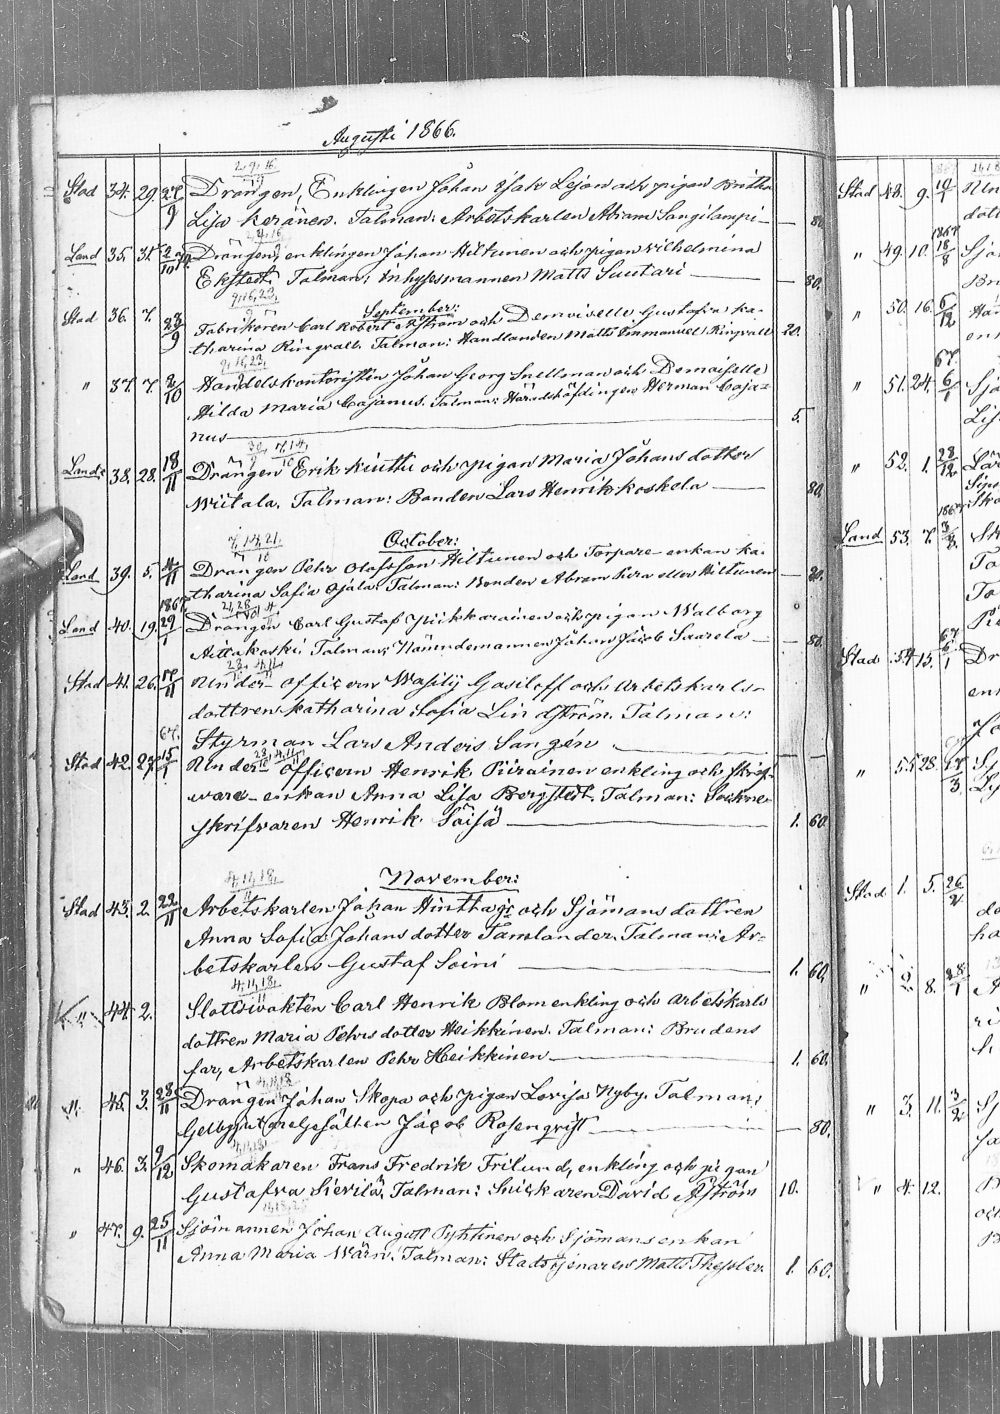 Augusti 1866.
2, 9, 16
Stad 34. 29. 27/9 Drängen, Enklingen Johan Isak Lejon och pigan Britha
Lisa Keränen. Talman: Arbetskarlen Abram Sangilampi — 80.
Land 35. 31. 2/10 Drängen, enklingen Johan Hiltunen och pigan Wilhelmina
Ekstedt. Talman: Inhysesmannen Matts Suutari — 80.
9, 16, 23,
September:
Stad 36. 7. 23/9 Fabrikören Carl Robert Åström och Demoiselle Gustafva Ka-
tharina Ringvall. Talman: Handlanden Matts Emmanuel Ringvall 20.
9, 16, 23,
" 37. 7. 2/10 Handelskontoristen Johan Georg Snellman och Demoiselle
Hilda Maria Cajanus. Talman: Häradshöfdingen Herman Caja=
nus — 5.
30, 7, 14,
Land 38. 28. 18/11 Drängen Erik Kinttu och pigan Maria Johansdotter
Wiitala. Talman: Bonden Lars Henrik Koskela — 80.
October:
7, 14, 21,
Land 39. 5. 4/11 Drängen Pehr Olofsson Hiltunen och Torpare-enkan Ka-
tharina Sofia Ojala. Talman: Bonden Abram Hiltunen — 20.
1867.
21, 28
Land 40. 19. 29/1 Drängen Carl Gustaf Piikkarainen och pigan Walborg
Aittakoski. Talman: Nämndemannen Johan Jacob Saarela — 80.
28, 4, 11
Stad 41. 26. 17/11 Under-officern Wasilij Gasiloff och Arbetskarls-
dottren Katharina Sofia Lindström. Talman:
Styrman Lars Anders Sangén — —
67.
28, 4, 11
Stad 42. 27. 15/1 Under officern Henrik Piirainen enkling och Skrif-
ware-enkan Anna Lisa Bergstedt. Talman: Sockne-
skrifvaren Henrik Säisä — 1. 60.
November:
4, 11, 18,
Stad 43. 2. 22/11 Arbetskarlen Johan Hintha och Sjömansdottren
Anna Sofia Johansdotter Tamlander. Talman: Ar-
betskarlen Gustaf Soini — 1. 60.
4, 11, 18,
" 44. 2. Slottswakten Carl Henrik Blom enkling och Arbetskarls
dottren Maria Pehrsdotter Heikkinen. Talman: Brudens
far, Arbetskarlen Pehr Heikkinen — 1. 60.
4, 11, 18
" 45. 3. 28/11 Drängen Johan Skopa och pigan Lovisa Nyby. Talman:
Gelbgjutaregesällen Jacob Rosenqvist — 80.
4, 11, 18
" 46. 3. 9/12 Skomakaren Frans Fredrik Frilund, enkling och pigan
Gustafva Sievilä. Talman: Snickaren David Åström 10.
" 47. 9. 25/11 Sjömannen Johan August Pyhtinen och Sjömansenkan
Anna Maria Wärn. Talman: Stadstjenaren Matts Thessler. 1. 60.
Stad 48. 9. 10/1
" 49. 10. 1867 18/8
" 50. 16. 6/12
67.
" 51. 24. 6/1
" 52. 1. 28/12
Land 53. 7.
Stad 54. 15. 67. 6/1
" 55. 28.
Stad 1. 5. 26/2
" 2. 8. 28/1
" 3. 11. 3/2
" 4. 12.